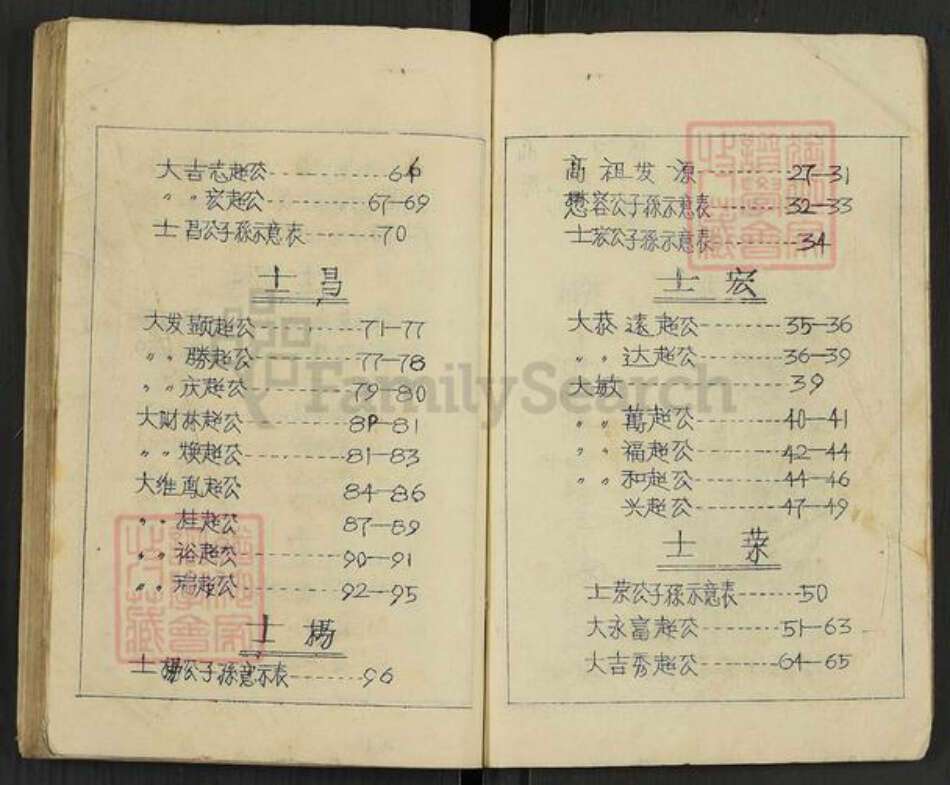 大吉志趂公 66
〃 〃 宏趂公 67—69
士昌公子孫示意表 70
士 昌
大发顕趂公 71—77
〃 〃 勝趂公 77—78
〃 〃 庆趂公 79—80
大财林趂公 81
〃 〃 焕趂公 81—83
大维鳳趂公 84—86
〃 〃 桂趂公 87—89
〃 〃 裕趂公 90—91
〃 〃 瑞趂公 92—95
士 楊
士楊公子孫意示表 96
高祖发源 27—31
懋容公子孫示意表 32—33
士宏公子孫示意表 34
士 宏
大恭遠趂公 35—36
〃 〃 达趂公 36—39
大敏 39
〃 〃 萬趂公 40—41
〃 〃 福趂公 42—44
〃 〃 和趂公 44—46
兴趂公 47—49
士 荣
士荣公子孫示意表 50
大永富趂公 51—63
大吉秀趂公 64—65
FamilySearch